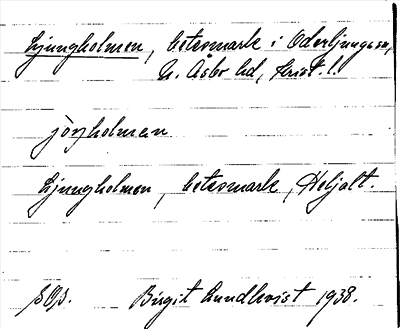 Ljungholmen, betesmark i Oderljunga sn,
N. Åsbo hd, Krist. l.
jöŋholmen
Ljungholmen, betesmark, Heljalt.
Birgit Lundkvist 1938.